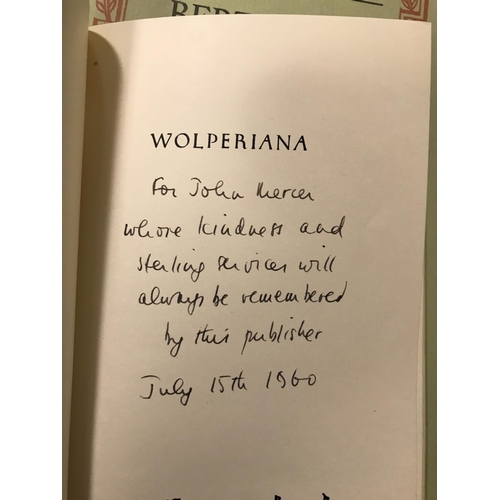 WOLPERIANA
For John Mercer
whose kindness and
sterling services will
always be remembered
by this publisher
July 15th 1960